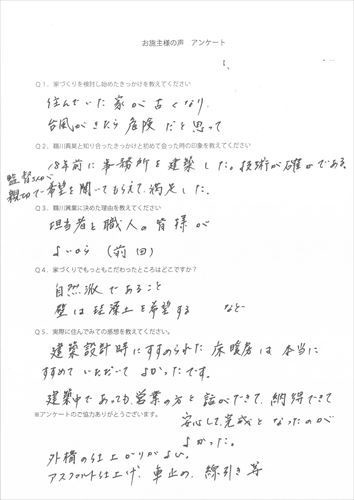 お施主様の声 アンケート
Q1. 家づくりを検討し始めたきっかけを教えてください
住んでいた家が古くなり、
台風がきたら危険だと思って
Q2. 鶴川興業と知り合ったきっかけと初めて会った時の印象を教えてください
18年前に事務所を建築した。技術が確かである。
監督さんが
親切で希望を聞いてもらえて満足した。
Q3. 鶴川興業に決めた理由を教えてください
担当者と職人の皆様が
よいから (前回)
Q4. 家づくりでもっともこだわったところはどこですか?
自然派であること
壁は珪藻土を希望する など
Q5. 実際に住んでみての感想を教えてください。
建築設計時にすすめられた床暖房は本当に
すすめていただいてよかったです。
建築中であっても営業の方と話ができて、納得できて
※アンケートのご協力ありがとうございます。
安心して完成となったのが
よかった。
外構の仕上がりがよい。
アスファルト仕上げ、車止め、線引き等